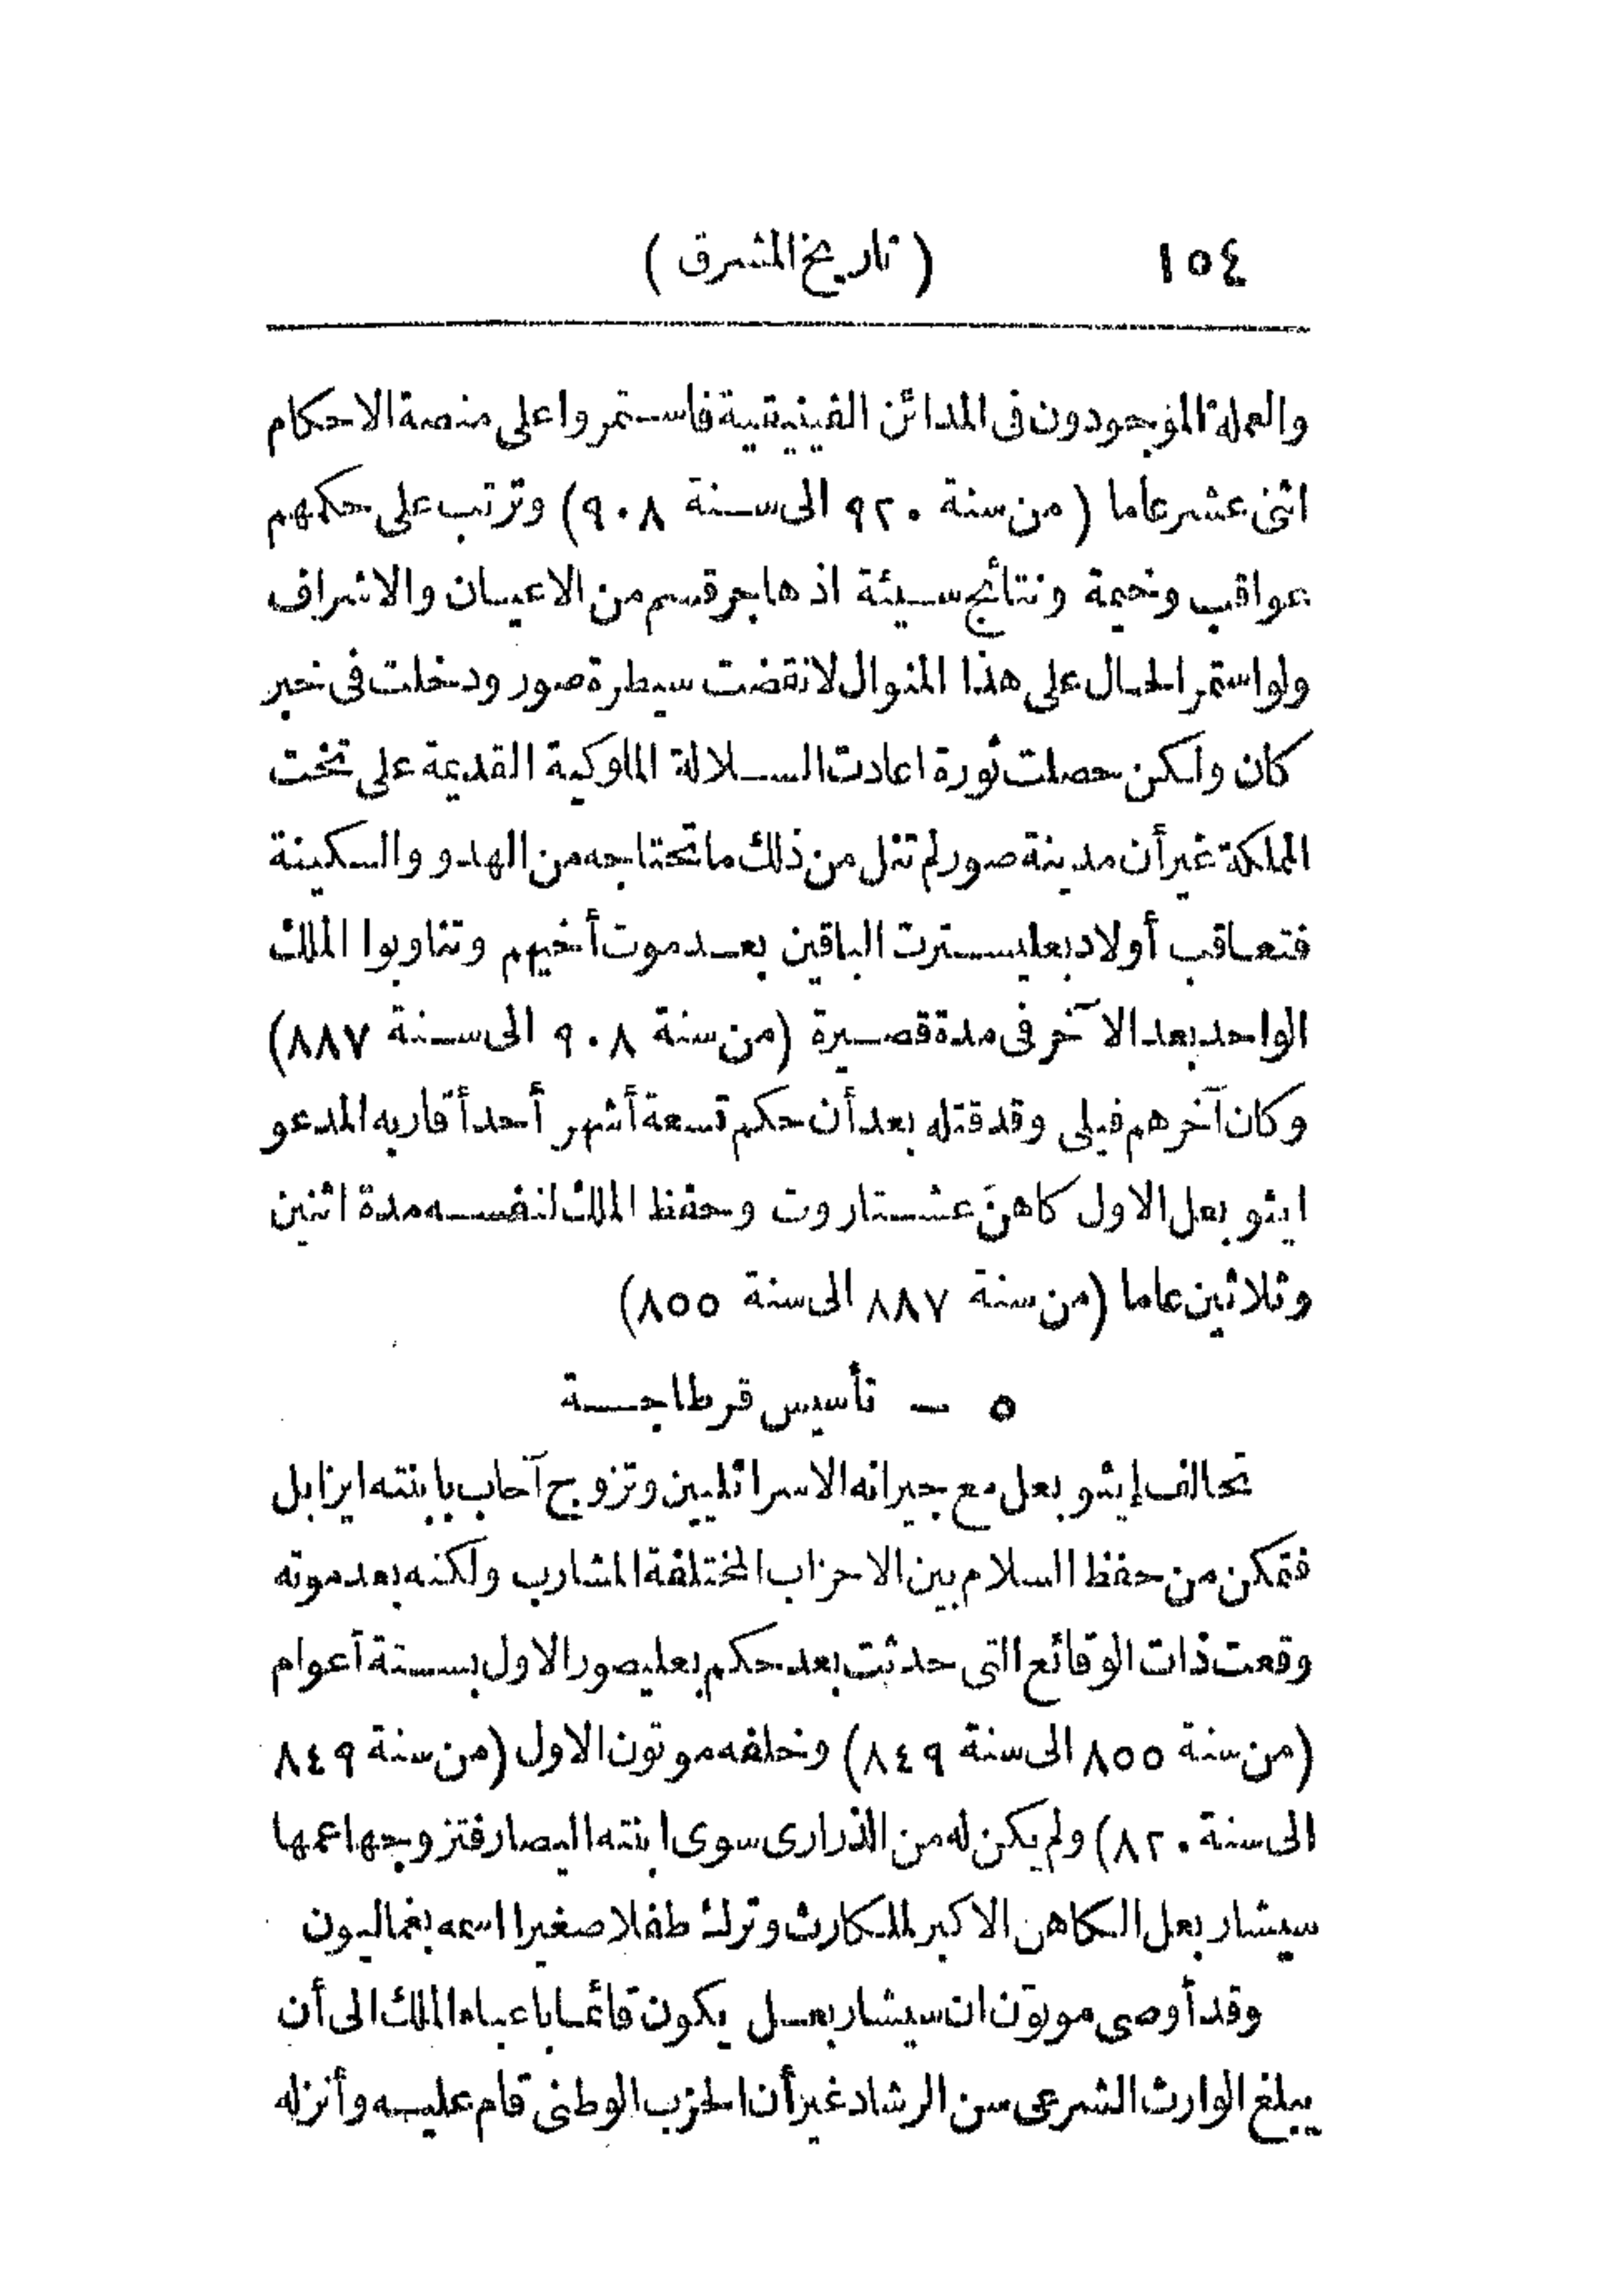 ١٥٤ (تاريخ المشرق)
والعملة الموجودون فى المدائن الفينيقية فاستمروا على منصة الاحكام
اثنى عشر عاما (من سنة ٩٢٠ الى سنة ٩٠٨) وترتب على حكمهم
عواقب وخيمة ونتائج سيئة اذ هاجر قسم من الاعيان والاشراف
ولو استمر الحال على هذا المنوال لانقضت سيطرة صور ودخلت فى خبر
كان ولكن حصلت ثورة اعادت السلالة الملوكية القديمة على تخت
المملكة غير أن مدينة صور لم تنل من ذلك ما تحتاجه من الهدو والسكينة
فتعاقب أولاد بعليسترت الباقين بعد موت أخيهم وتناوبوا الملك
الواحد بعد الآخر فى مدة قصيرة (من سنة ٩٠٨ الى سنة ٨٨٧)
وكان آخرهم فيلى وقد قتله بعد أن حكم تسعة أشهر أحد أقاربه المدعو
ايثو بعل الاول كاهنَ عشتاروت وحفظ الملك لنفسه مدة اثنين
وثلاثين عاما (من سنة ٨٨٧ الى سنة ٨٥٥)
٥ — تأسيس قرطاجة
تحالف إيثو بعل مع جيرانه الاسرائليين وتزوج آحاب بابنته ايزابل
فتمكن من حفظ السلام بين الاحزاب المختلفة المشارب ولكنه بعد موته
وقعت ذات الوقائع التى حدثت بعد حكم بعليصور الاول بستة أعوام
(من سنة ٨٥٥ الى سنة ٨٤٩) وخلفه موتون الاول (من سنة ٨٤٩
الى سنة ٨٢٠) ولم يكن له من الذرارى سوى ابنته اليصار فتزوجها عمها
سيشار بعل الكاهن الاكبر لملكارث وترك طفلا صغيرا اسمه بغماليون
وقد أوصى موتون ان سيشار بعل يكون قائما باعباء الملك الى أن
يبلغ الوارث الشرعى سن الرشاد غير أن الحزب الوطنى قام عليه وأنزله